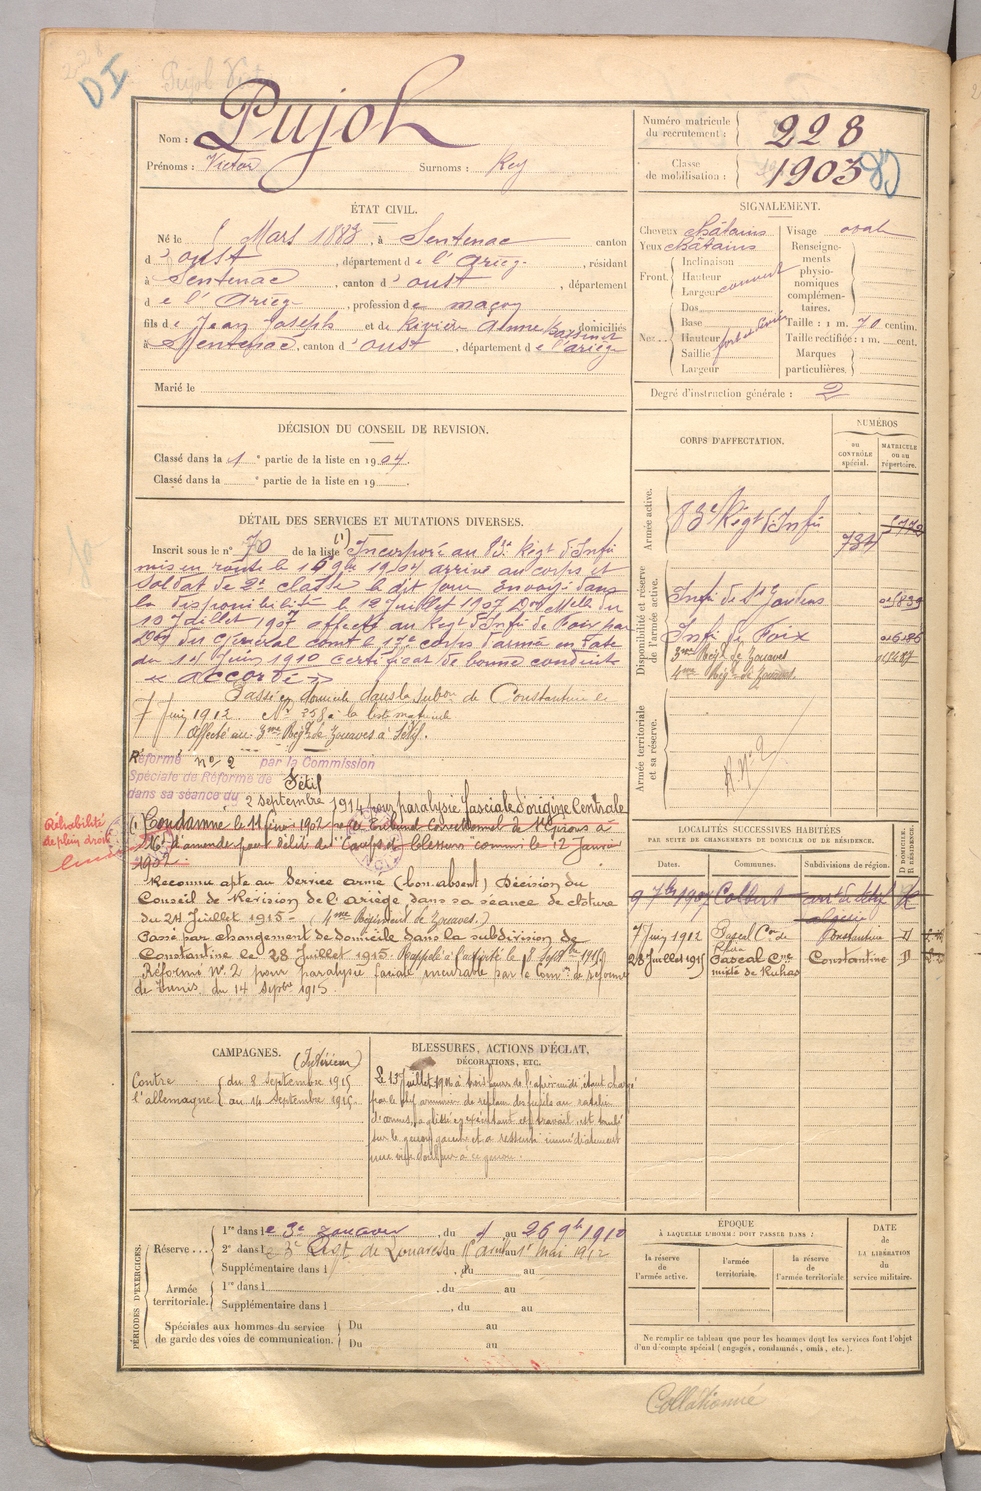 DI
Nom : Pujol
Prénoms : Victor Surnoms : Rey
Numéro matricule du recrutement : 228
Classe de mobilisation : 1903
ÉTAT CIVIL.
Né le Mars 1883, à Sentenac canton
d'oust, département de l'Ariège, résidant
à Sentenac, canton d'oust, département
de l'Ariège, profession de maçon
fils de Jean Joseph et de Rivière Anne domiciliés
à Sentenac, canton d'oust, département de l'ariège
Marié le
SIGNALEMENT.
Cheveux châtains Visage oval
Yeux châtains
Front. Inclinaison
Hauteur
Largeur couvert
Nez.. Dos
Base
Hauteur
Saillie
Largeur
Renseignements physionomiques complémentaires.
Taille : 1 m. 70 centim.
Taille rectifiée : 1 m. cent.
Marques particulières.
Degré d'instruction générale : 2
DÉCISION DU CONSEIL DE REVISION.
Classé dans la 1e partie de la liste en 1904.
Classé dans la e partie de la liste en 19
DÉTAIL DES SERVICES ET MUTATIONS DIVERSES.
Inscrit sous le n° 70 de la liste (1) Incorporé au 83e Régt d'Infie
mis en route le 16 9bre 1904 arrivé au corps et
soldat de 2e classe le dit jour Envoyé dans
la disponibilité le 12 Juillet 1907 Don Melle du
10 Juillet 1907 affecté au Régt d'Infie de Foix par
Don du Général comt le 17e corps d'armée en date
du 14 Juin 1910 certificat de bonne conduite
« accordé »
Passé en domicile dans la subon de Constantine le
7 Juin 1912 N° 258 à la liste matricule
Affecté au 3me Régt de Zouaves à Sétif.
Réformé n° 2 par la Commission
Spéciale de Réforme de Sétif
dans sa séance du 2 septembre 1914 pour paralysie fasciale d'origine Centrale
Réhabilité
de plein droit
(1) Condamné le 11 février 1902 par le Tribunal Correctionnel de St Girons à
16f d'amende pour délit de Coups et blessures commis le 12 Janvier
1902
Reconnu apte au Service armé (bon absent) Décision du
Conseil de Révision de l'ariège dans sa séance de clôture
du 24 Juillet 1915 - (4me Régiment de Zouaves.)
Passé par changement de domicile dans la subdivision de
Constantine le 28 Juillet 1915 Rappelé à l'activité le 8 Septbre 1915
Réformé N° 2 pour paralysie faciale incurable par la Comon de réforme
de Tunis du 14 Septbre 1915
CORPS D'AFFECTATION.
NUMÉROS
AU CONTRÔLE spécial.
MATRICULE OU AU répertoire.
Armée active.
83e Régt d'Infie 734 5772
Disponibilité et réserve de l'armée active.
Infie de St Gaudens
Infie de Foix
3me Régt de Zouaves
4me Régt de Zouaves.
Armée territoriale et sa réserve.
R. N° 2
LOCALITÉS SUCCESSIVES HABITÉES
PAR SUITE DE CHANGEMENTS DE DOMICILE OU DE RÉSIDENCE.
Dates. Communes. Subdivisions de région. D DOMICILE. R RÉSIDENCE.
9 7bre 1907 Colbert algérie R
7 Juin 1912 Pascal Cne de Constantine D
28 Juillet 1915 Pascal Cne mixte de Rirhas Constantine D
CAMPAGNES. (Intérieur)
Contre l'allemagne { du 8 Septembre 1915
au 14 Septembre 1915.
BLESSURES, ACTIONS D'ÉCLAT,
DÉCORATIONS, ETC.
Le 13 Juillet 1906 à trois heures de l'après midi étant chargé
par le de replacer des fusils au ratelier
d'armes, a glissé en exécutant ce travail, est tombé
sur le genou gauche et a ressenti immédiatement
une vive douleur à ce genou.
PÉRIODES D'EXERCICES.
Réserve... 1re dans le 3e zouaves, du 4 au 26 9bre 1910
2e dans le 3e Rgt de Zouaves du 1er avril au 1er Mai 1912
Supplémentaire dans l , du au
Armée territoriale. 1re dans l , du au
Supplémentaire dans l , du au
Spéciales aux hommes du service de garde des voies de communication. Du au
Du au
ÉPOQUE
À LAQUELLE L'HOMME DOIT PASSER DANS :
la réserve de l'armée active.
l'armée territoriale.
la réserve de l'armée territoriale
DATE de LA LIBÉRATION du service militaire.
Ne remplir ce tableau que pour les hommes dont les services font l'objet
d'un décompte spécial (engagés, condamnés, omis, etc.).
Collationné